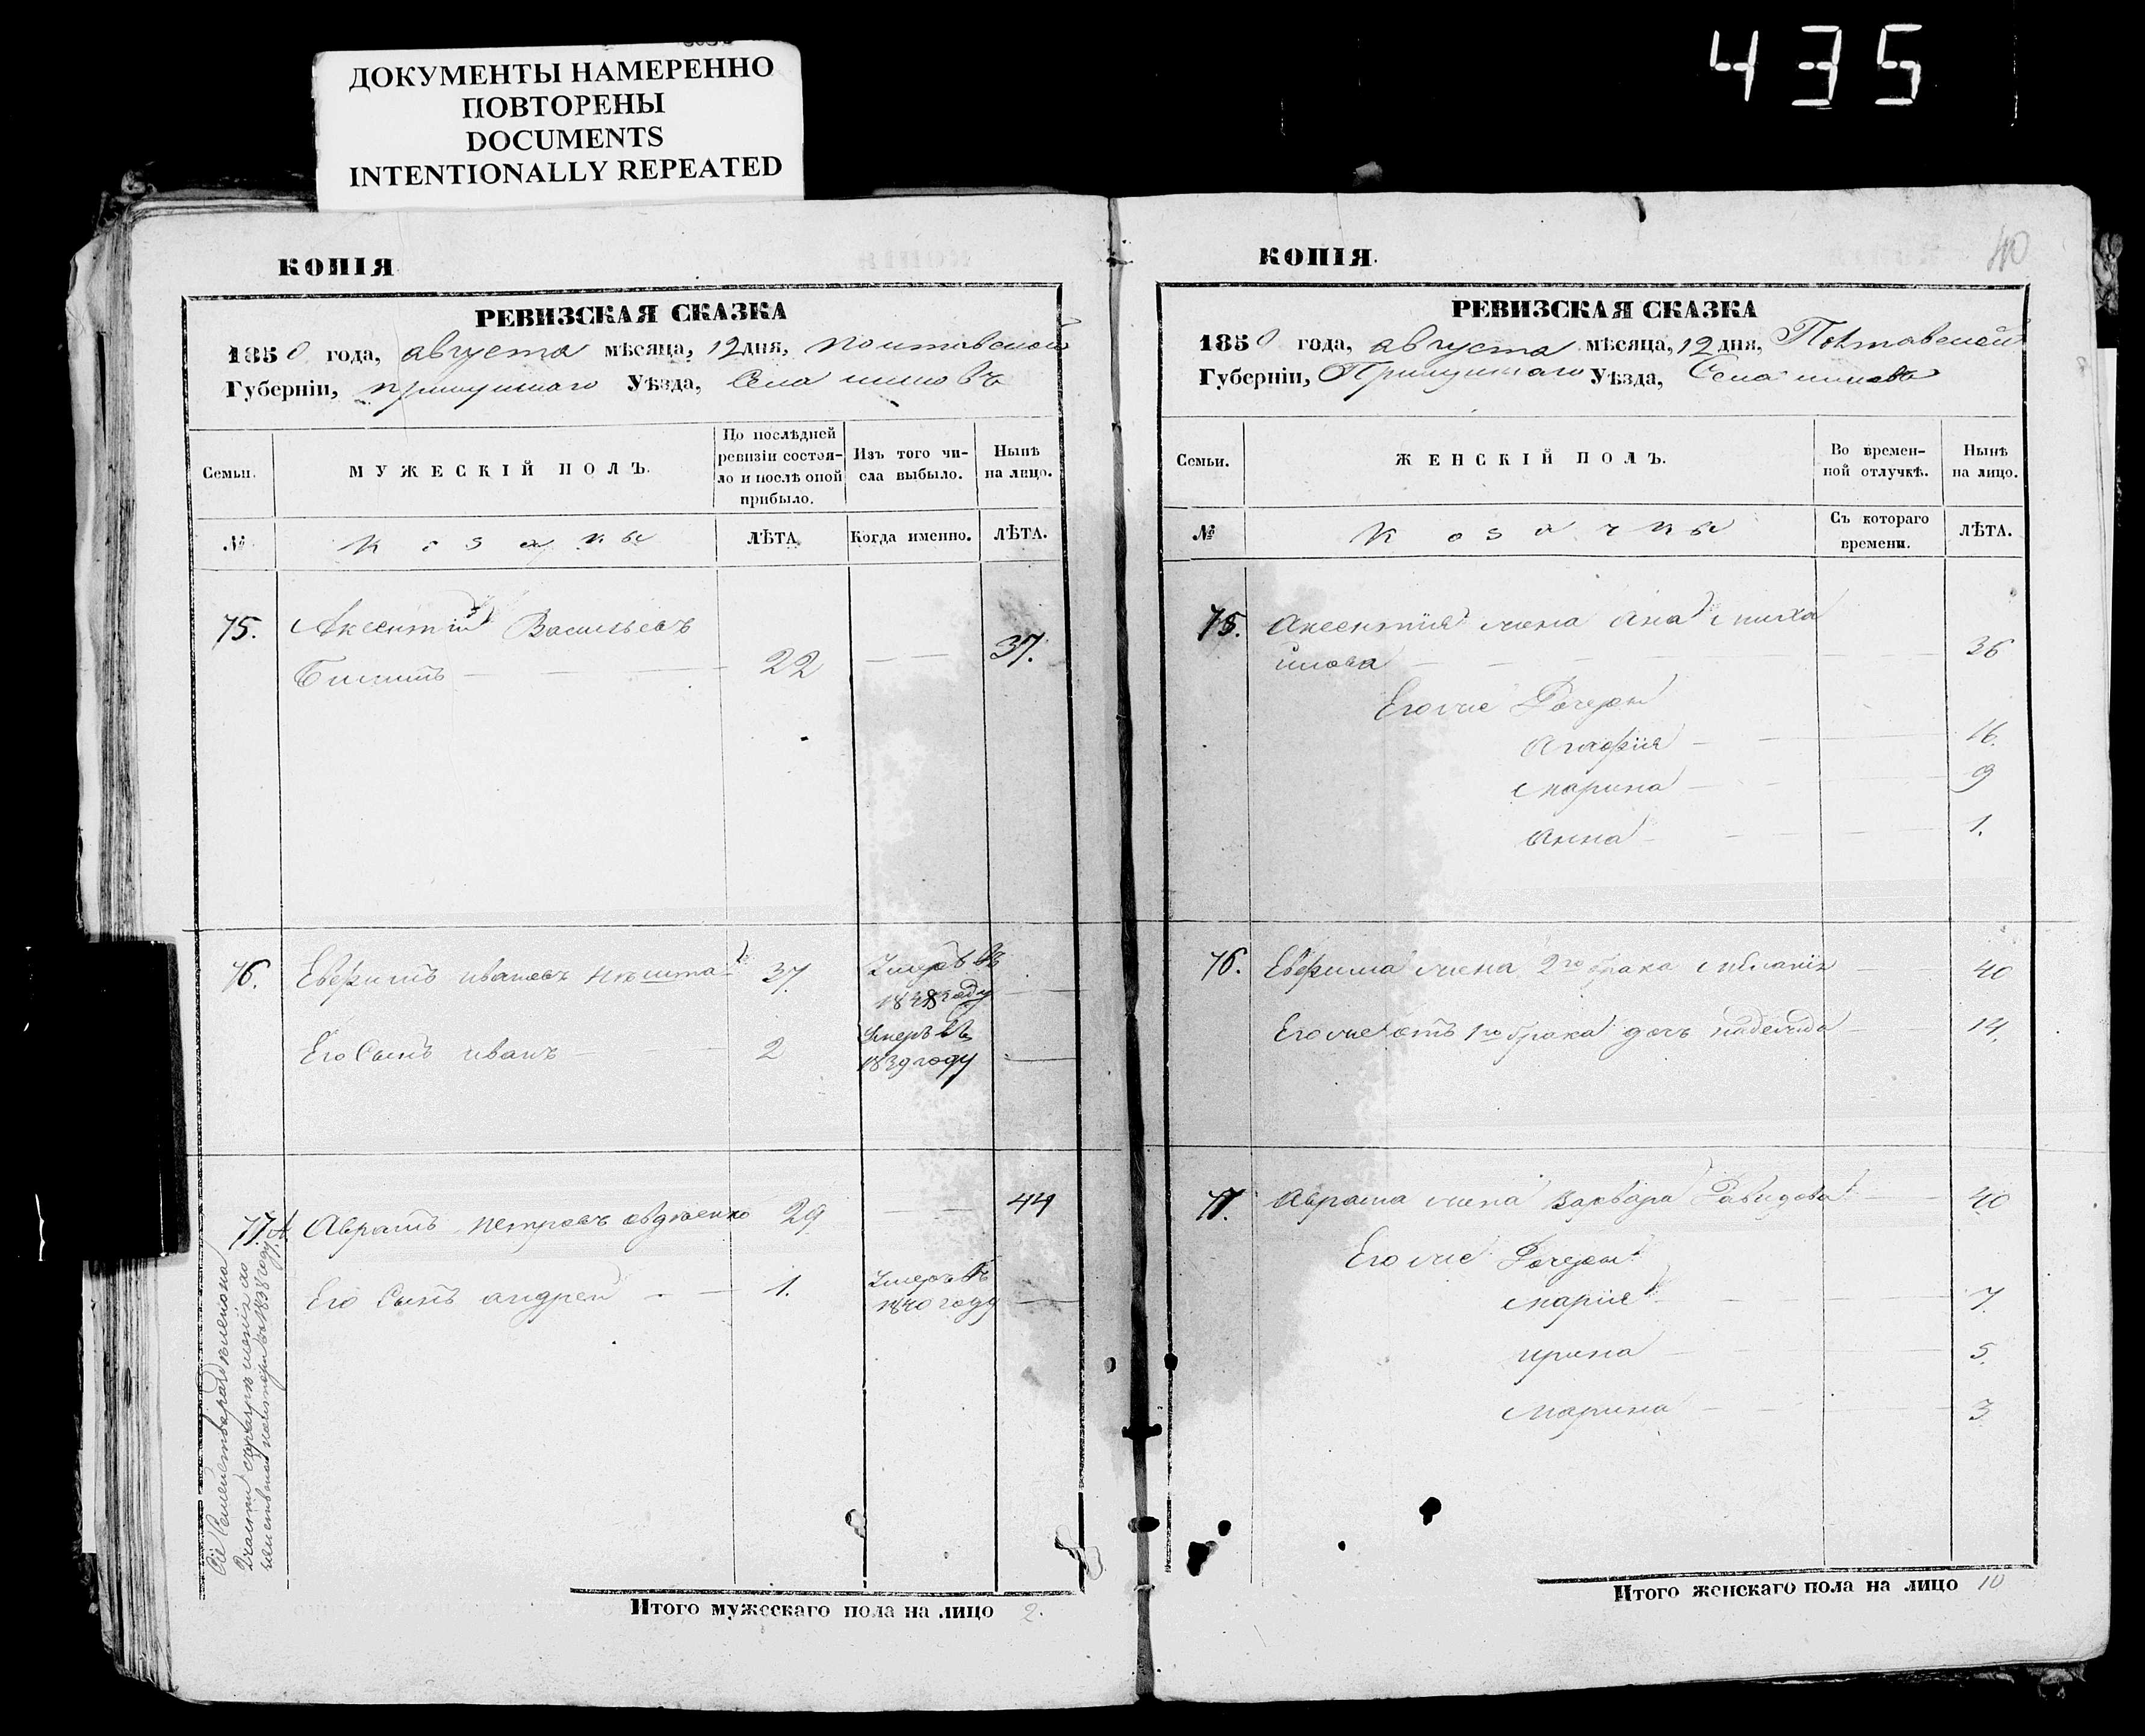 435
ДОКУМЕНТЫ НАМЕРЕННО
ПОВТОРЕНЫ
DOCUMENTS
INTENTIONALLY REPEATED
КОПІЯ
РЕВИЗСКАЯ СКАЗКА
1850 года, августа мѣсяца, 12 дня, Полтавской
Губерніи, Прилуцкаго Уѣзда, Села
Семьи.
МУЖЕСКІЙ ПОЛЪ.
По послѣдней
ревизіи состоя-
ло и послѣ оной
прибыло.
Изъ того чи-
сла выбыло.
Нынѣ
на лицо.
№
Козаки
ЛѢТА.
Когда именно.
ЛѢТА.
75. Аксентій Васильевъ
22 37.
76. Евфимъ Ивановъ 37 Умеръ въ
1848 году
Его Сынъ иванъ 2 Умеръ въ
1839 году
77. Аврамъ Петровъ 29 44
Его Сынъ андрей 1. Умеръ въ
1840 году
Итого мужескаго пола на лицо 2.
КОПІЯ.
40
РЕВИЗСКАЯ СКАЗКА
1850 года, августа мѣсяца, 12 дня, Полтавской
Губерніи, Прилуцкаго Уѣзда, Села
Семьи.
ЖЕНСКІЙ ПОЛЪ.
Во времен-
ной отлучкѣ.
Нынѣ
на лицо.
№
Козачки
Съ котораго
времени.
ЛѢТА.
75. Аксентія жена Ана Миха
йлова 36
Его же Дочери
Агафія 16.
Марина 9
Анна 1.
76. Евфима жена 2го брака Меланія 40
Его же отъ 1го брака дочь надежда 14.
77. Аврама жена Варвара Давидова 40
Его же Дочери
Марія 7.
ирина 5.
Марина 3
Итого женскаго пола на лицо 10